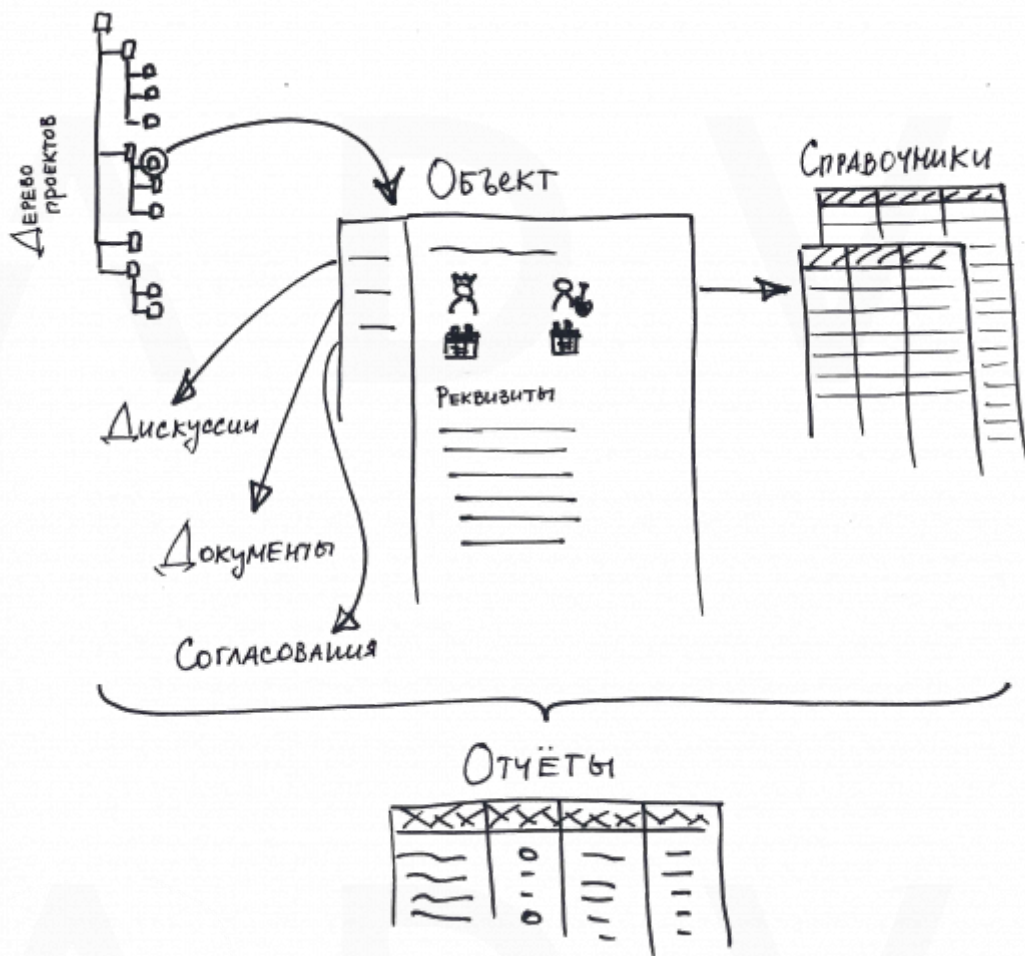 Дерево
проектов
Объект
Справочники
Реквизиты
Дискуссии
Документы
Согласования
Отчёты